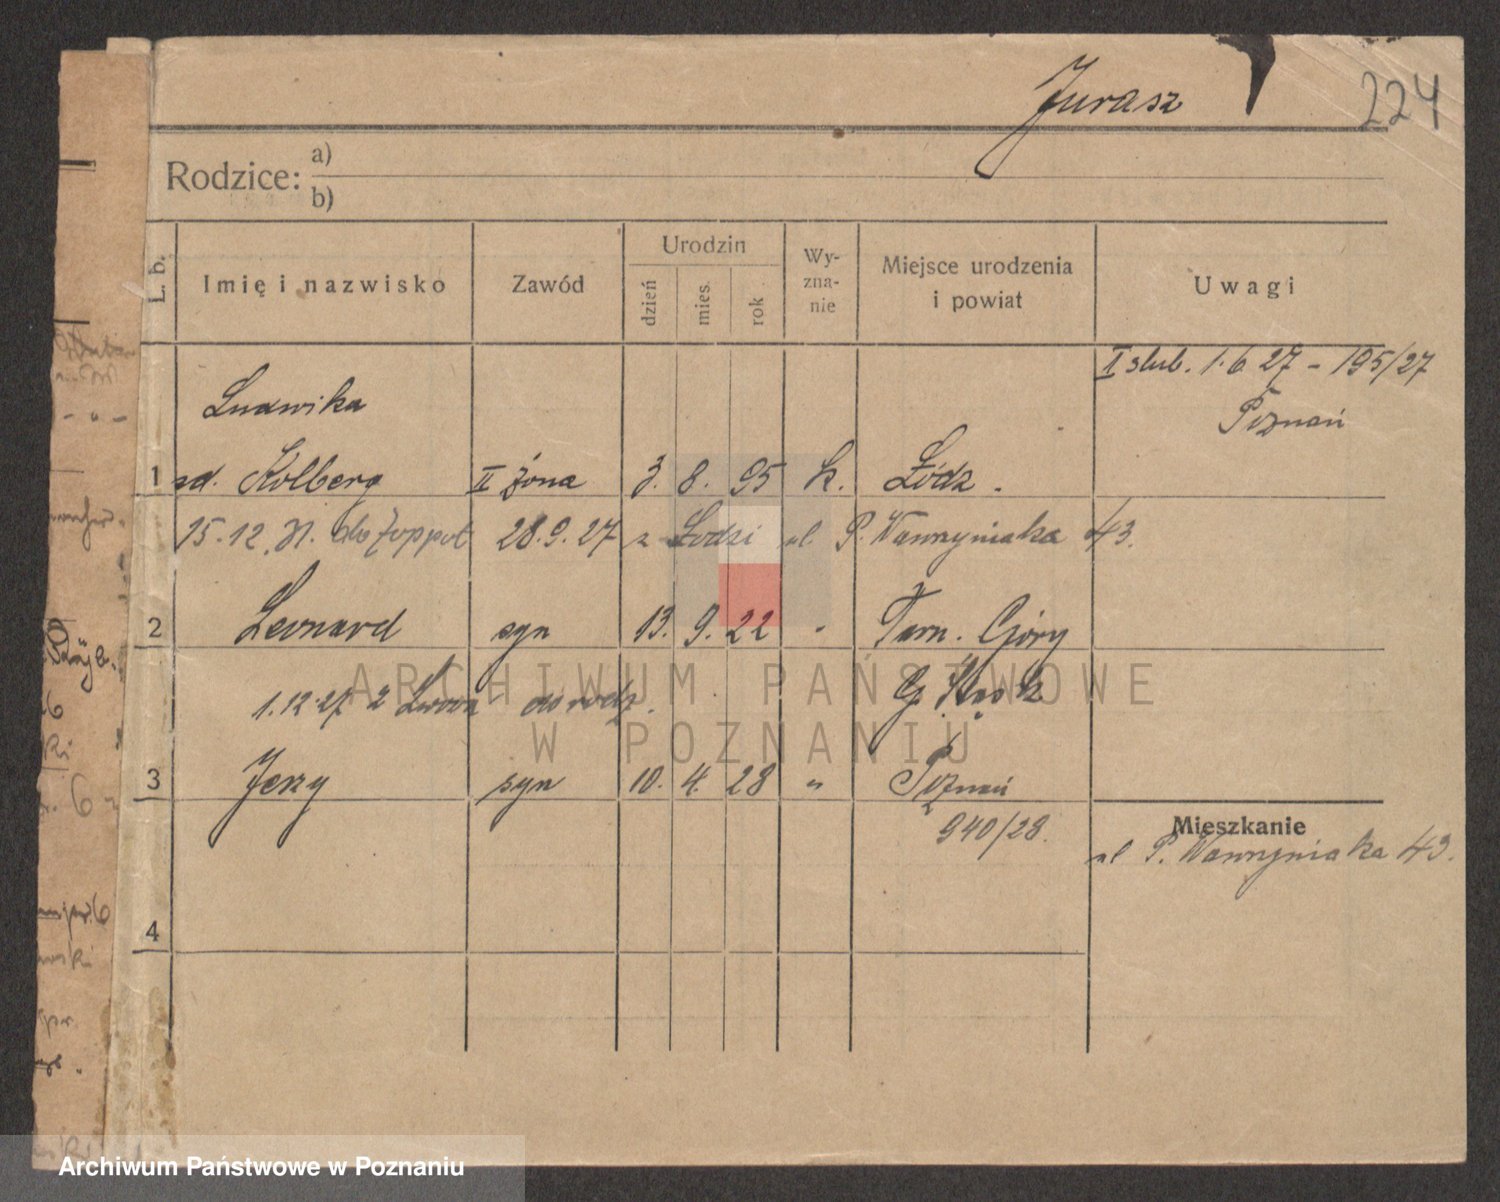 Jurasz
224
Rodzice: a)
b)
L. b.
Imię i nazwisko
Zawód
Urodzin
dzień
mies.
rok
Wy-
zna-
nie
Miejsce urodzenia
i powiat
Uwagi
II slub. 1.6.27 - 195/27
Poznań
Ludwika
1 zd. Kolberg II żona 3. 8. 95 k. Łódz.
15.12.31. do Zoppot 28.9.27 z Łodzi ul P. Wawrzyniaka 43.
2 Leonard syn 13. 9. 22 " Tarn. Góry
1.12.27 z Lwowa do rodz. G. Śląsk
3 Jerzy syn 10. 4. 28 " Poznań
940/28.
Mieszkanie
ul P. Wawrzyniaka 43.
4
ARCHIWUM PAŃSTWOWE
W POZNANIU
Archiwum Państwowe w Poznaniu